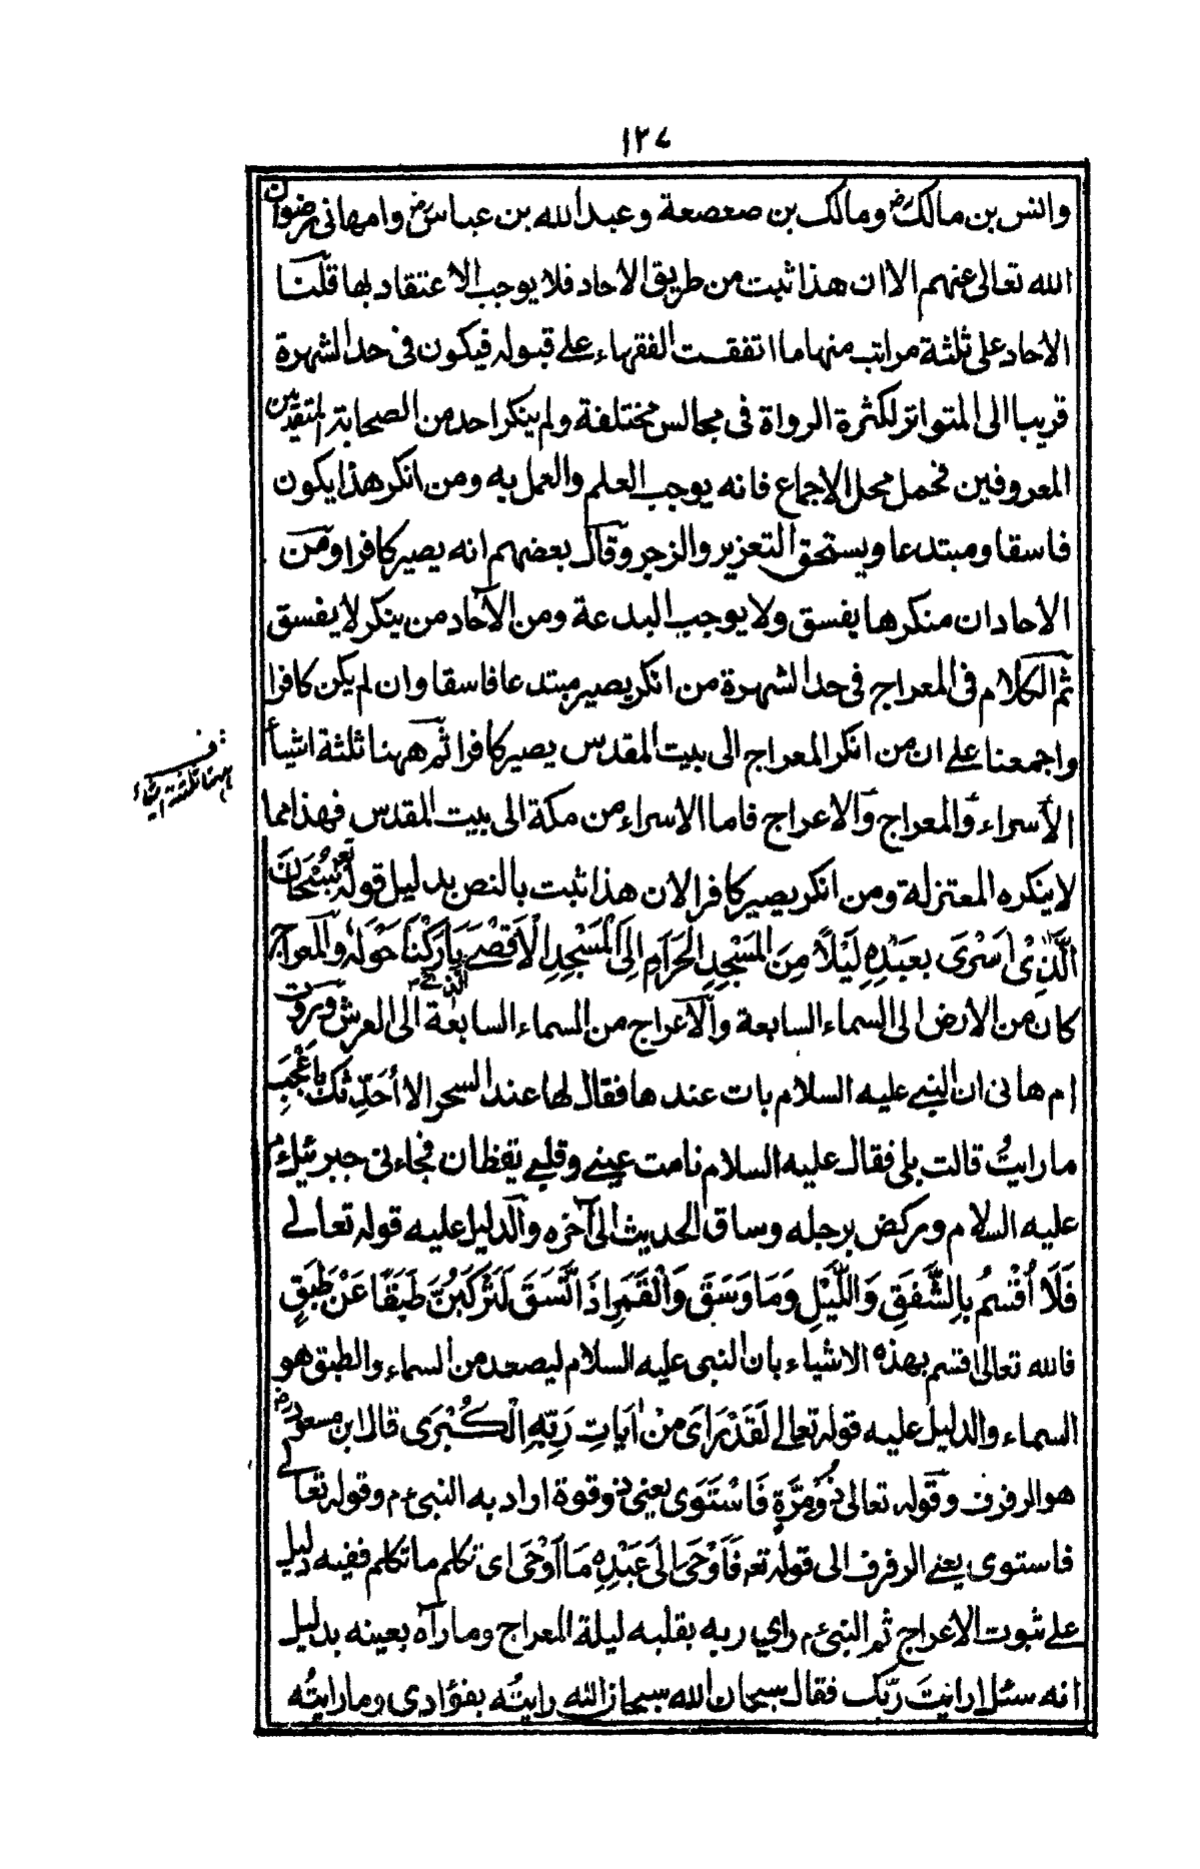 ١٢٧
وانس بن مالك رض ومالك بن صعصعة وعبد الله بن عباس رض وامهانى رضوان
الله تعالى عنهم الا ان هذا ثبت من طريق الاحاد فلا يوجب الاعتقاد بها قلنا
الاحاد على ثلثة مراتب منها ما اتفقت الفقهاء على قبوله فيكون فى حد الشهرة
قريبا الى المتواتر لكثرة الرواة فى مجالس مختلفة ولم ينكر احد من الصحابة المتقدمين
المعروفين فحمل محل الاجماع فانه يوجب العلم والعمل به ومن انكر هذا يكون
فاسقا ومبتدعا ويستحق التعزير والزجر وقال بعضهم انه يصير كافرا ومن
الاحاد ان منكرها يفسق ولا يوجب البدعة ومن الآحاد من ينكر لا يفسق
ثم الكلام فى المعراج فى حد الشهرة من انكر يصير مبتدعا فاسقا وان لم يكن كافرا
واجمعنا على ان من انكر المعراج الى بيت المقدس يصير كافرا ثم ههنا ثلثة اشيأ
الأسراء والمعراج والاعراج فاما الاسراء من مكة الى بيت المقدس فهذا مما
لا ينكره المعتزلة ومن انكر يصير كافرا لان هذا ثبت بالنص بدليل قوله تعر سُبْحَانَ
الَّذِىْ اَسْرَى بِعَبْدِهِ لَيْلاً مِنَ الْمَسْجِدِ الْحَرَامِ اِلَى الْمَسْجِدِ الْاَقْصَے الَّذِے بَارَكْنَا حَوْلَهُ والمعراج
كان من الارض الى السماء السابعة والاعراج من السماء السابعة الى العرش وروت
ام هانى ان النبے عليه السلام بات عندها فقال لها عند السحر الا أُحَدِّثُك بِاَعْجَبِ
ما رايتُ قالت بلى فقال عليه السلام نامت عينے وقلبے يقظان فجاءنى جبرئيل م
عليه السلام وركض برجله وساق الحديث الى آخره والدليل عليه قوله تعالے
فَلَا اُقْسِمُ بِالشَّفَقِ وَاللَّيْلِ وَمَا وَسَقَ وَالْقَمَرِ اِذَا اتَّسَقَ لَتَرْكَبُنَّ طَبَقًا عَنْ طَبَقٍ
فالله تعالى اقسم بهذه الاشياء بان النبى عليه السلام ليصعد من السماء والطبق هو
السماء والدليل عليه قوله تعالے لَقَدْ رَاَى مِنْ اٰيَاتِ رَبِّهِ الْكُبْرَى قال ابن مسعود رض
هو الرفرف وقوله تعالى ذُوْمِرَّةٍ فَاسْتَوَى يعنى ذو قوة اراد به النبىء م وقوله تعالے
فاستوى يعنے الرفرف الى قوله تعر فَاَوْحَى اِلَى عَبْدِهِ مَا اَوْحَى اى تكلم ما تكلم ففيه دليل
على ثبوت الاعراج ثم النبىء م راي ربه بقلبه ليلة المعراج وما رآه بعينه بدليل
انه سئل ارايتَ ربّك فقال سبحان الله سبحان الله رايتُه بفؤادى وما رايتُه
ف
ههنا ثلثة اشياء